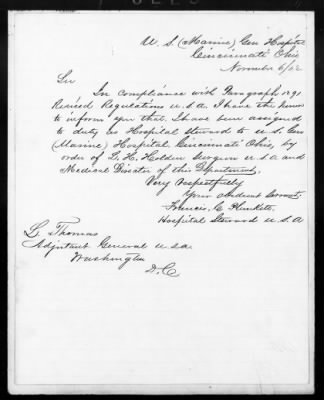 U. S. (Marine) Gen Hospital
Cincinnati Ohio
November 6/62
Sir
In compliance with Paragraph
Revised Regulations U.S.A. I have the honor
to inform you that I have been assigned
to duty as Hospital Steward to U.S. Gen
(Marine) Hospital Cincinnati Ohio, by
order of Holden Surgeon U.S.A. and
Medical Director of this Department.
Very Respectfully
Your obedient Servant
Francis C.
Hospital Steward U.S.A
L. Thomas
Adjutant General U.S.A.
Washington
D.C.